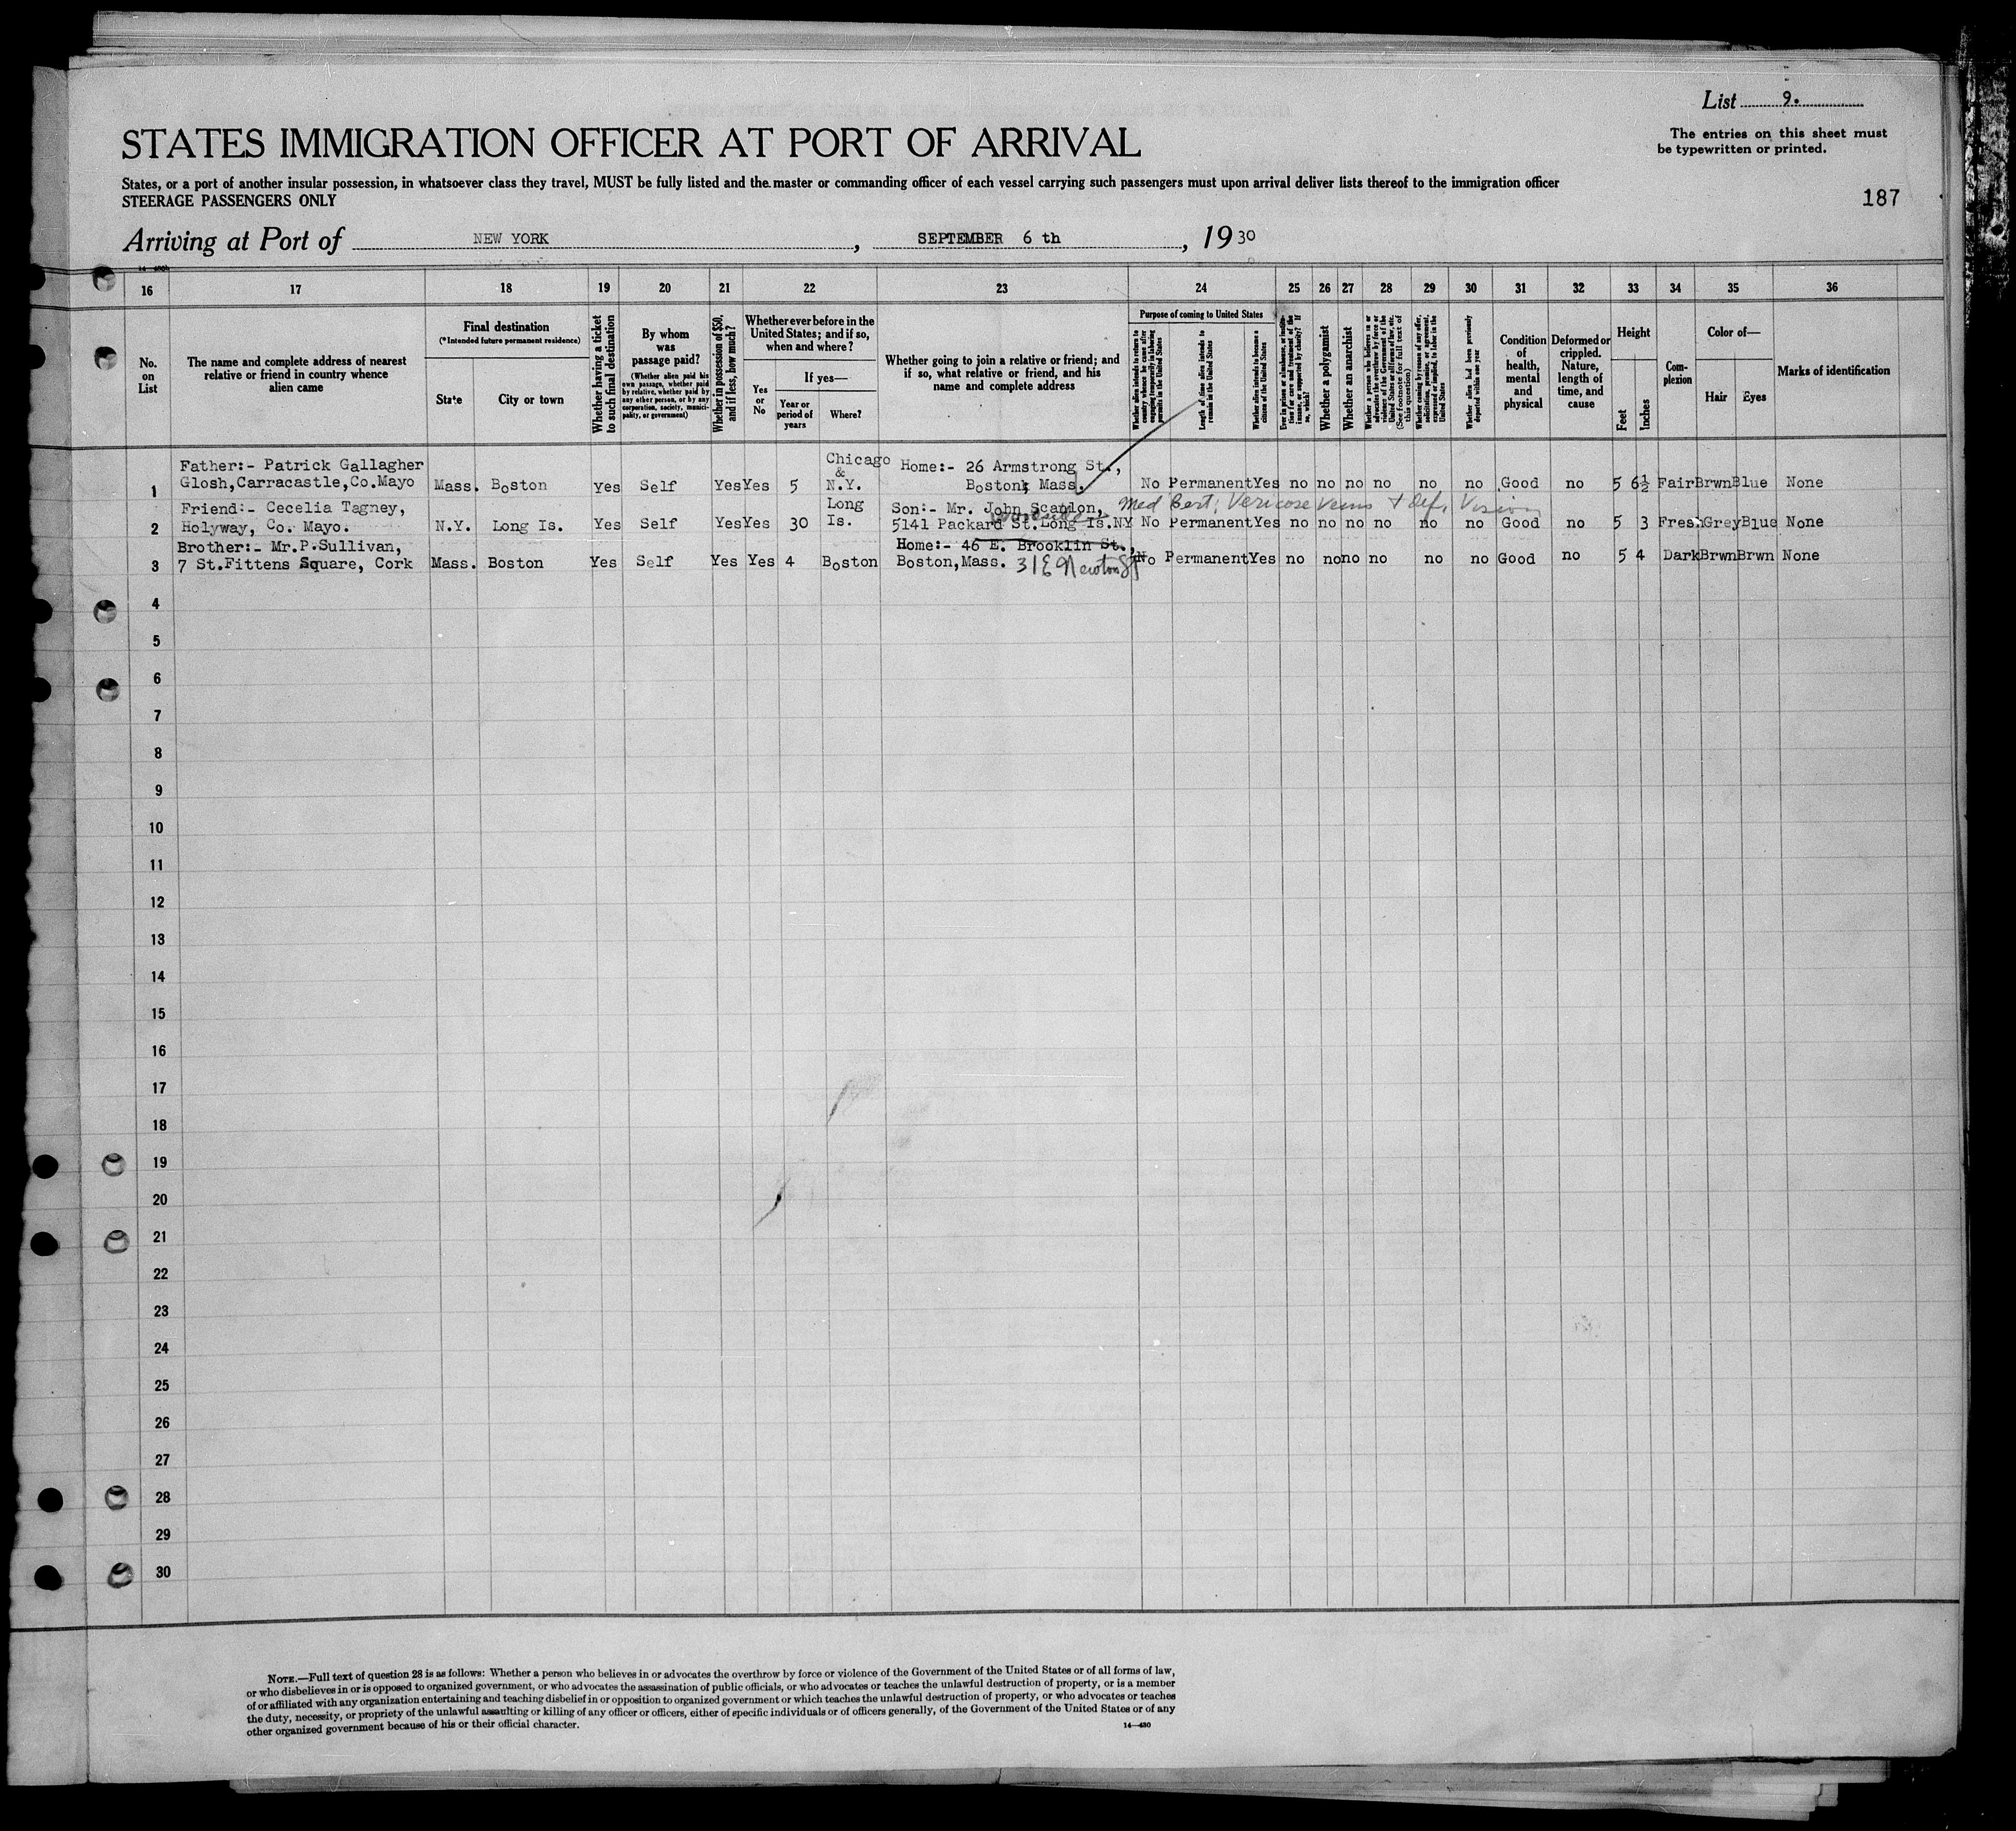 List 9.
The entries on this sheet must
be typewritten or printed.
STATES IMMIGRATION OFFICER AT PORT OF ARRIVAL
States, or a port of another insular possession, in whatsoever class they travel, MUST be fully listed and the master or commanding officer of each vessel carrying such passengers must upon arrival deliver lists thereof to the immigration officer
STEERAGE PASSENGERS ONLY
187
Arriving at Port of NEW YORK, SEPTEMBER 6 th, 1930
16 17 18 19 20 21 22 23 24 25 26 27 28 29 30 31 32 33 34 35 36
No. on List
The name and complete address of nearest relative or friend in country whence alien came
Final destination
(*Intended future permanent residence)
State
City or town
Whether having a ticket to such final destination
By whom was passage paid?
(Whether alien paid his own passage, whether paid by relative, whether paid by any other person, or by any corporation, society, municipality, or government)
Whether in possession of $50, and if less, how much?
Whether ever before in the United States; and if so, when and where?
Yes or No
If yes—
Year or period of years
Where?
Whether going to join a relative or friend; and if so, what relative or friend, and his name and complete address
Purpose of coming to United States
Whether alien intends to return to country whence he came after engaging temporarily in laboring pursuits in the United States
Length of time alien intends to remain in the United States
Whether alien intends to become a citizen of the United States
Ever in prison or almshouse, or institution for care and treatment of the insane, or supported by charity? If so, which?
Whether a polygamist
Whether an anarchist
Whether a person who believes in or advocates the overthrow by force or violence of the Government of the United States or all forms of law, etc. (See footnote for full text of this question)
Whether coming by reason of any offer, solicitation, promise, or agreement, expressed or implied, to labor in the United States
Whether alien had been previously deported within one year
Condition of health, mental and physical
Deformed or crippled. Nature, length of time, and cause
Height
Feet
Inches
Complexion
Color of—
Hair
Eyes
Marks of identification
Father:- Patrick Gallagher Chicago & Home:- 26 Armstrong St.,
1 Glosh,Carracastle,Co.Mayo Mass. Boston Yes Self Yes Yes 5 N.Y. Boston, Mass. No Permanent Yes no no no no no no Good no 5 6½ Fair Brwn Blue None
Friend:- Cecelia Tagney, Long Son:- Mr. John Scanlon, Med Cert; Vericose Veins + Def. Vision
2 Holyway, Co. Mayo. N.Y. Long Is. Yes Self Yes Yes 30 Is. 5141 Packard St. Long Is.NY No Permanent Yes no no no no no no Good no 5 3 Fresh Grey Blue None
Brother:- Mr.P.Sullivan, Home:- 46 E. Brooklin St.,
3 7 St.Fittens Square, Cork Mass. Boston Yes Self Yes Yes 4 Boston Boston,Mass. 31 E Newton St No Permanent Yes no no no no no no Good no 5 4 Dark Brwn Brwn None
4
5
6
7
8
9
10
11
12
13
14
15
16
17
18
19
20
21
22
23
24
25
26
27
28
29
30
NOTE.—Full text of question 28 is as follows: Whether a person who believes in or advocates the overthrow by force or violence of the Government of the United States or of all forms of law,
or who disbelieves in or is opposed to organized government, or who advocates the assassination of public officials, or who advocates or teaches the unlawful destruction of property, or is a member
of or affiliated with any organization entertaining and teaching disbelief in or opposition to organized government or which teaches the unlawful destruction of property, or who advocates or teaches
the duty, necessity, or propriety of the unlawful assaulting or killing of any officer or officers, either of specific individuals or of officers generally, of the Government of the United States or of any
other organized government because of his or their official character.
14—430